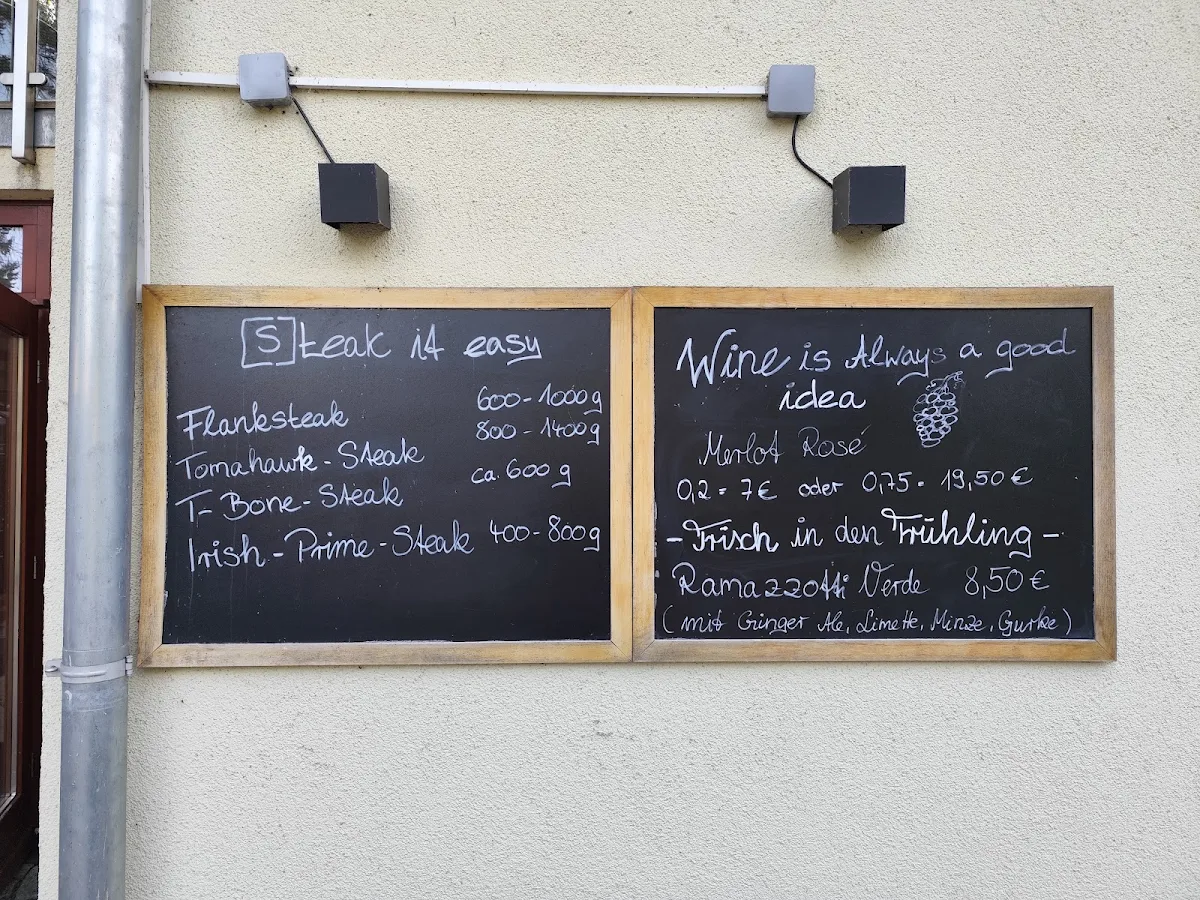 Steak it easy
Flanksteak 600-1000g
Tomahawk-Steak 800-1400g
T-Bone-Steak ca. 600g
Irish-Prime-Steak 400-800g
Wine is Always a good
idea
Merlot Rosé
0,2 = 7€ oder 0,75 = 19,50€
-Frisch in den Frühling-
Ramazzotti Verde 8,50€
(mit Ginger Ale, Limette, Minze, Gurke)